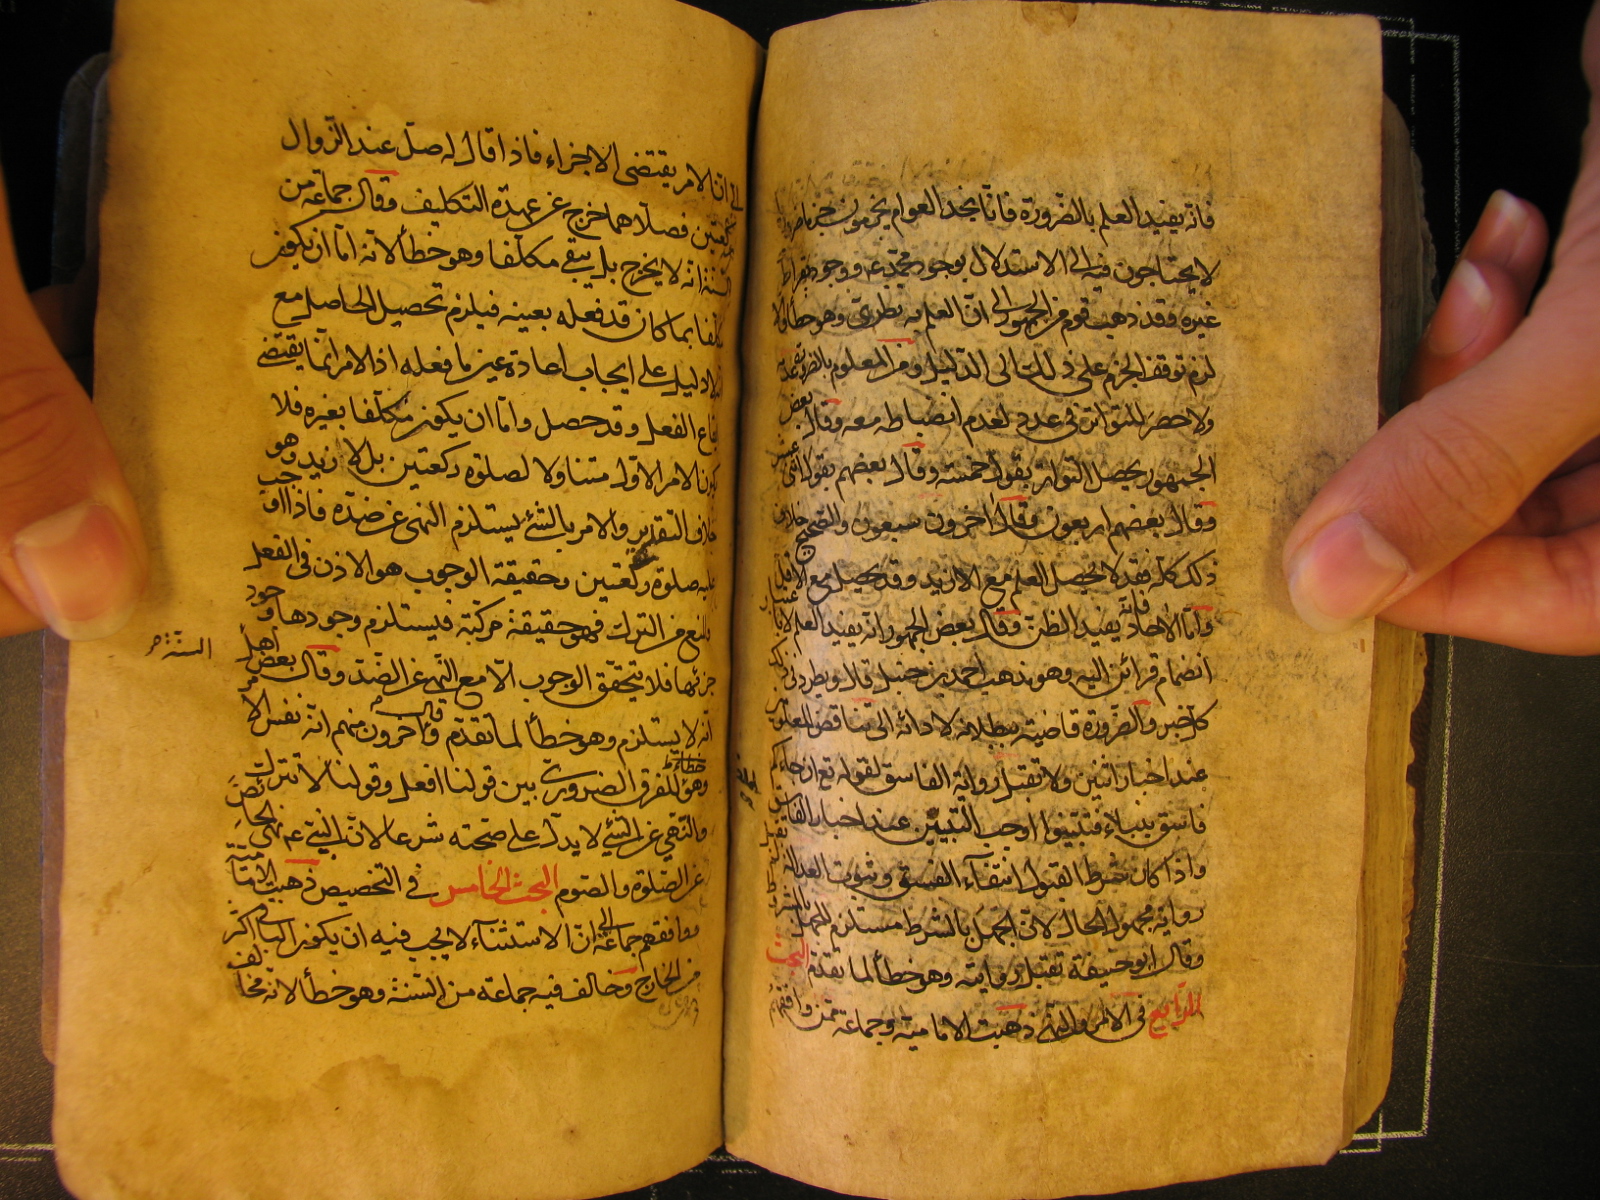 فانه يفيد العلم بالضرورة فانا نجد العوام يجزمون
لا يحتاجون فيه الى الاستدلال بوجود محمد ع ووجود
غيره وقد ذهب قوم من الجمهور الى ان العلم به نظرى وهو خطا والا
لزم توقف الجزم على ذلك الى الدليل ومن المعلوم بالضرورة عدمه
ولا حصر للمتواتر فى عدد لعدم انضباطه معه وقال بعض
الجمهور يحصل التواتر بقول خمسة وقال بعضهم بقول اثنى عشر
وقال بعضهم اربعون وقال اخرون سبعون والصحيح خلاف
ذلك كله فقد لا يحصل العلم مع الازيد وقد يحصل مع الاقل
واما الاحاد فانه يفيد الظن وقال بعض الجمهور انه يفيد العلم لا باعتبار
انضمام قرائن اليه وهو مذهب احمد بن حنبل قال ويطرد فى
كل خبر والضرورة قاضية ببطلانه لادائه الى تناقض المعلومين
عند اخبار اثنين ولا تقبل رواية الفاسق لقوله تع ان جاءكم
فاسق بنباء فتبينوا اوجب التبيين عند اخبار الفاسق
واذا كان شرط القبول انتفاء الفسق وثبوت العدالة
رواية مجهول الحال لان الجهل بالشرط مستلزم للجهل بالمشروط
وقال ابو حنيفة تقبل روايته وهو خطأ لما تقدم البحث
الرابع فى الامر والنهى ذهبت الامامية وجماعة ممن وافقهم
الى ان الامر يقتضى الاجزاء فاذا قال له صل عند الزوال
ركعتين فصلاهما خرج عن عهدة التكليف وقال جماعة من
السنة انه لا يخرج بل يبقى مكلفا وهو خطأ لانه اما ان يكون
مكلفا بما كان قد فعله بعينه فيلزم تحصيل الحاصل مع
لا دليل على ايجاب اعادة عين ما فعله اذ الامر انما يقتضى
ايقاع الفعل وقد حصل واما ان يكون مكلفا بغيره فلا
يكون الامر الاول متناولا لصلوة ركعتين بل لازيد وهو
خلاف التقدير والامر بالشئ يستلزم النهى عن ضده فاذا اوجب
عليه صلوة ركعتين وحقيقة الوجوب هو الاذن فى الفعل
والمنع من الترك فهو حقيقة مركبة فيستلزم وجودها وجود
جزئها فلا يتحقق الوجوب الا مع النهى عن الضد وقال بعض اهل
السنة
انه لا يستلزم وهو خطأ لما تقدم وقال اخرون منهم انه نفس الامر
وهو خطاء للفرق الضرورى بين قولنا افعل وقولنا لا تترك
والنهى عن الشئ لا يدل على صحته شرعا لان النبى ع نهى الحائض
عن الصلوة والصوم البحث الخامس فى التخصيص ذهبت الامامية
ووافقهم جماعة الى ان الاستثناء لا يجب فيه ان يكون الباقى اكثر
من الخارج وخالف فيه جماعة من السنة وهو خطأ لانه مخالف